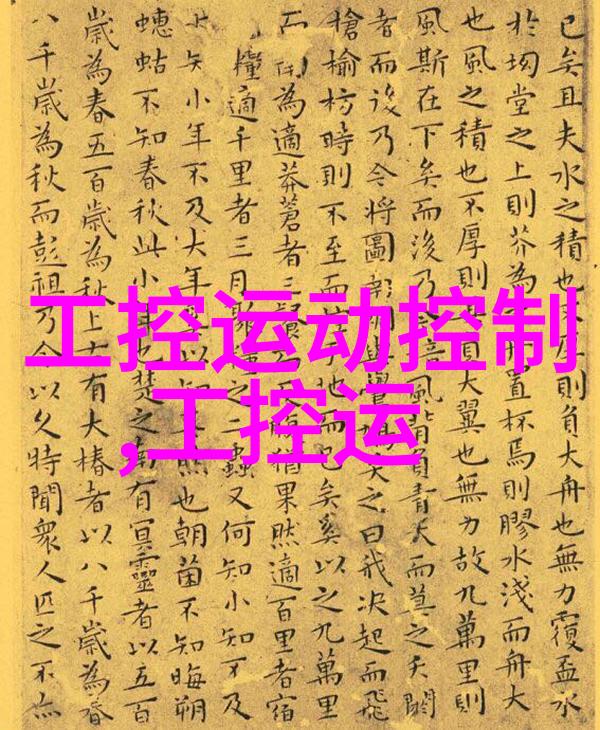 工控运动控制
,工控运
已矣且夫水之積也則負大舟也無力覆盃水
於坳堂之上則芥為置杯焉則膠水淺而舟大
也風之積也不厚則負大翼也無力故九萬里則
風斯在下矣而後乃風背負青天而莫之夭閼
者而後乃今將圖笑之曰我決起而飛
槍榆枋時則不至而地而已矣奚以之九萬里
而為適莽蒼者三猶果然適百里者宿
糧適千里者三月聚之二蟲又何知小知不及
小年不及大年以知然也朝菌不知晦朔
蟪蛄不知春秋此小年也楚之南有冥靈者以五百
歲為春五百歲為秋上古有大椿者以八千歲為春
八千歲為秋而彭祖乃今以久特聞衆人匹之不亦